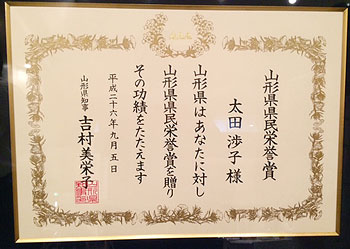 山形県県民栄誉賞
太田渉子様
山形県はあなたに対し
山形県県民栄誉賞を贈り
その功績をたたえます
平成二十六年九月五日
山形県知事 吉村美栄子